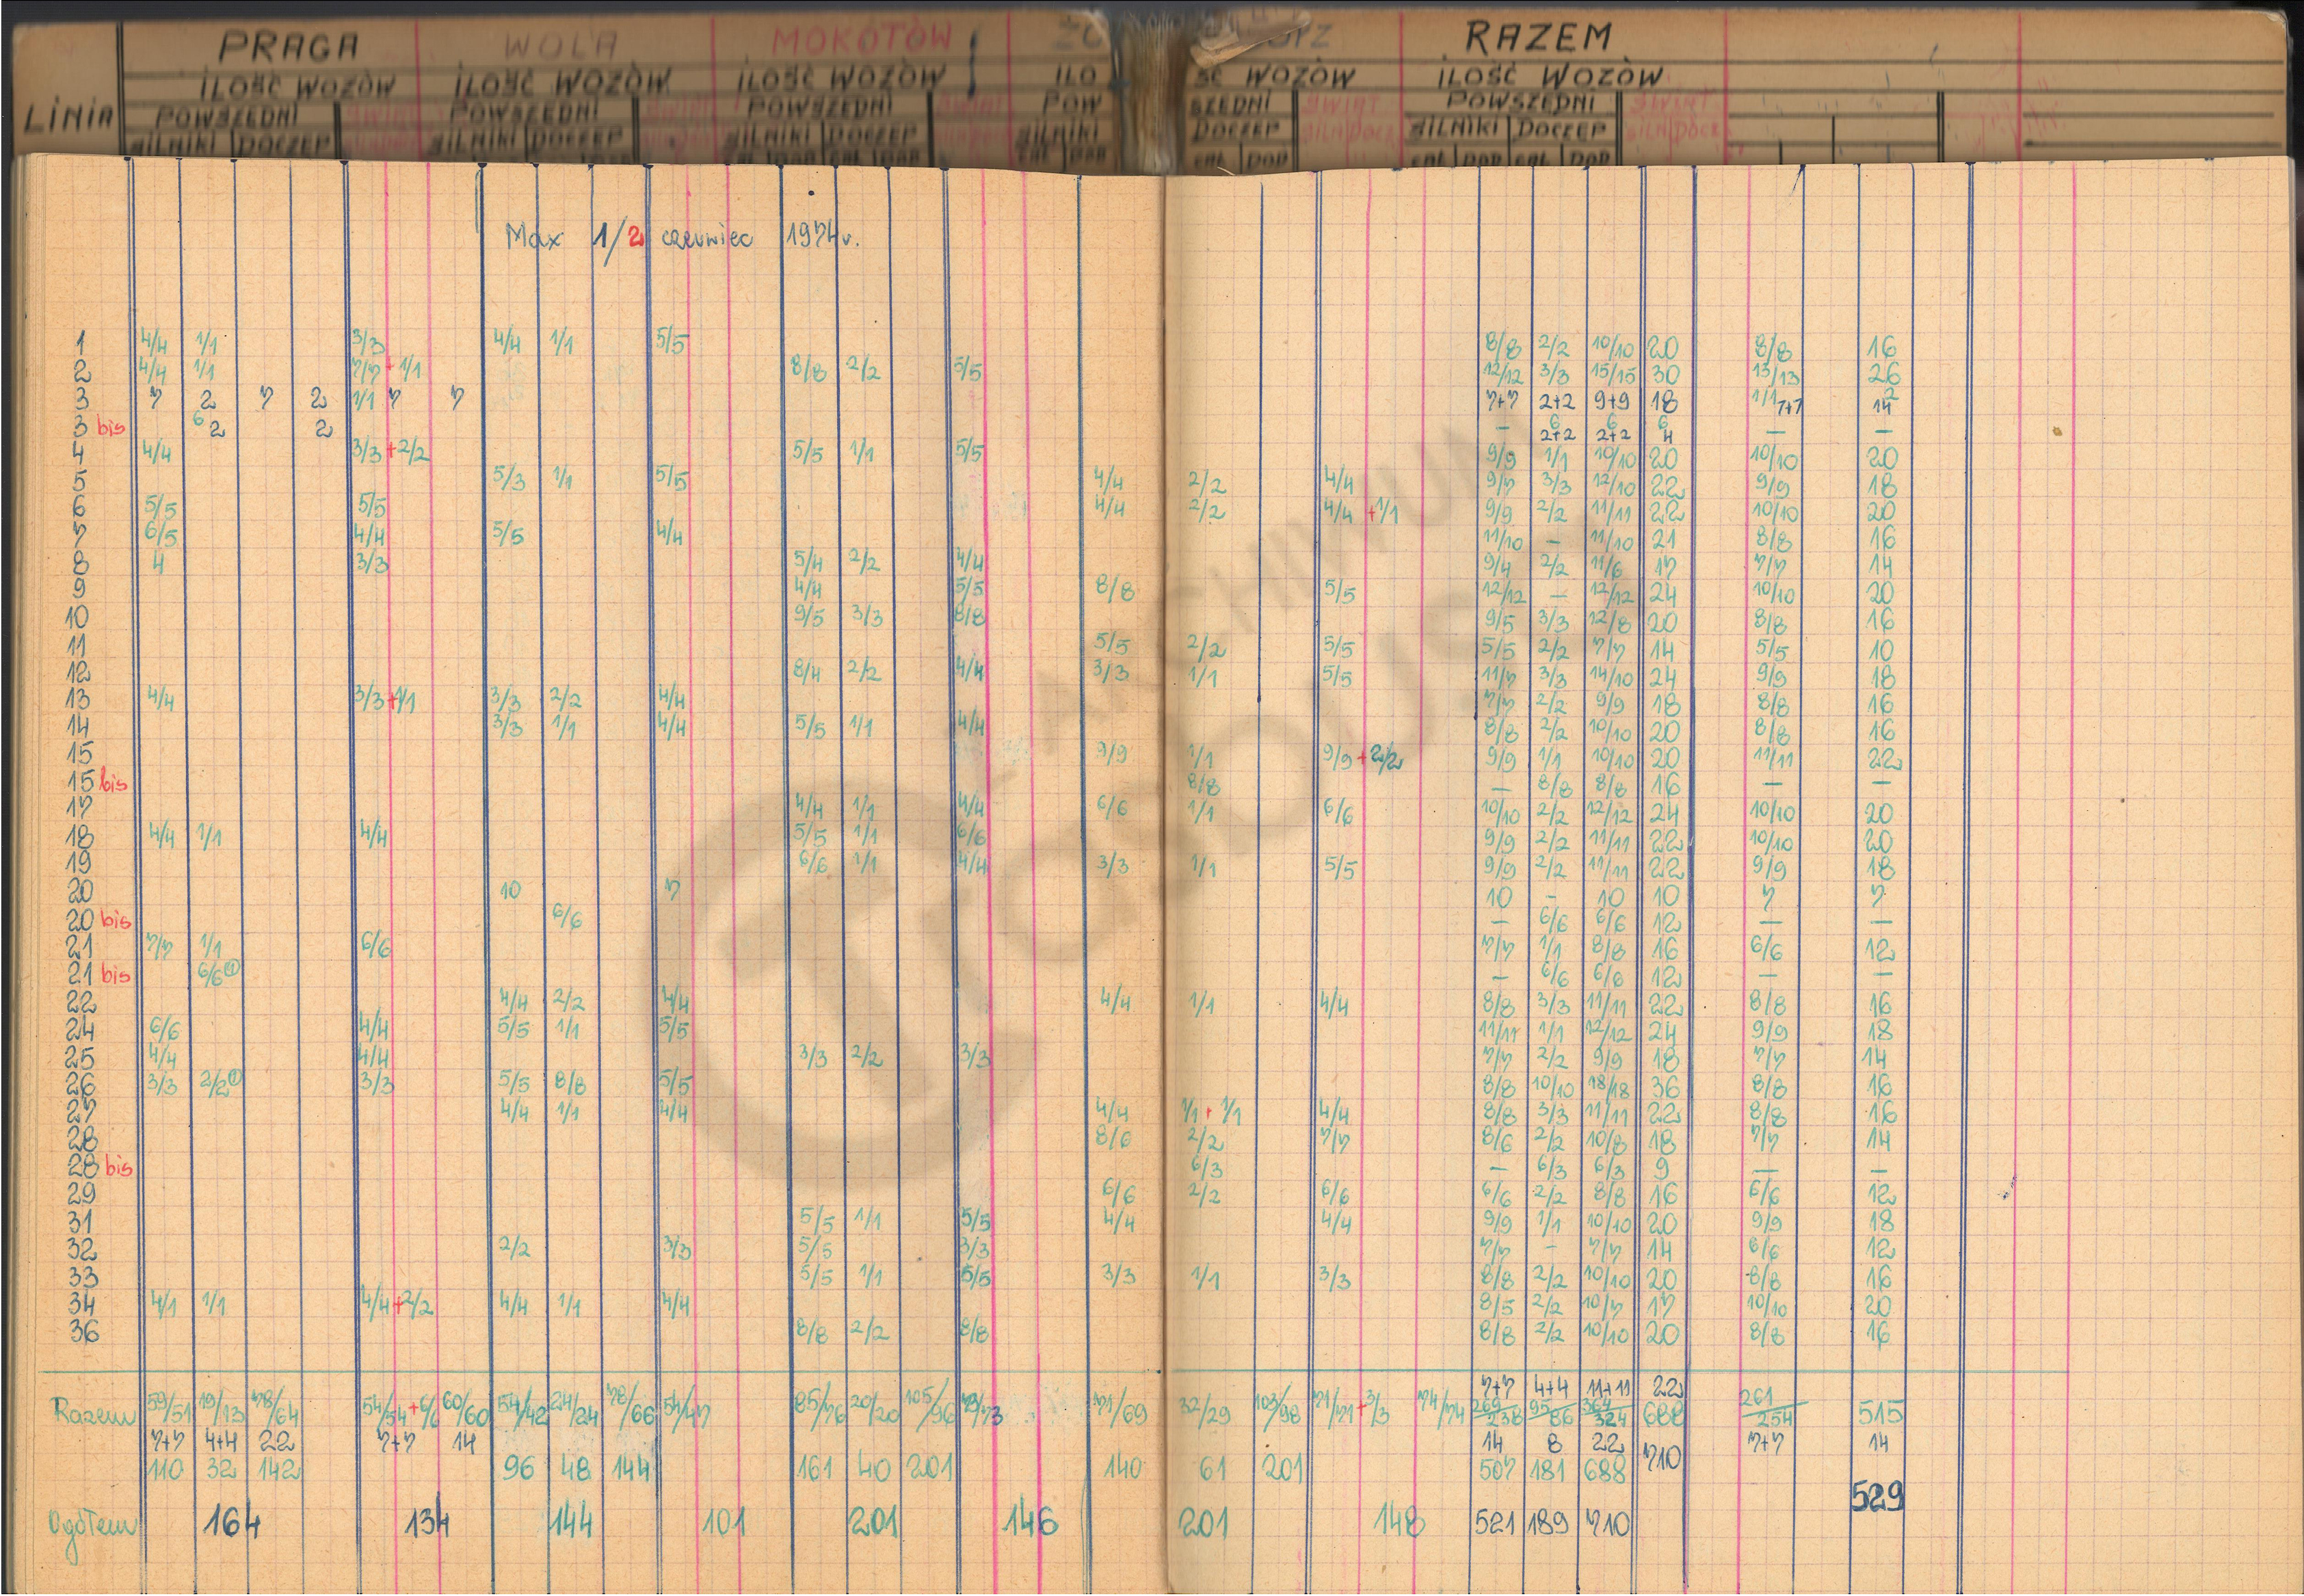 PRAGA WOLA MOKOTÓW RAZEM
ILOŚĆ WOZÓW ILOŚĆ WOZÓW ILOŚĆ WOZÓW ILO ŚĆ WOZÓW ILOŚĆ WOZÓW
LINIA POWSZEDNI ŚWIĄT POWSZEDNI POWSZEDNI ŚWIĄT POW SZEDNI ŚWIĄT POWSZEDNI ŚWIĄT
SILNIKI DOCZEP SILNIKI DOCZEP SILNIKI DOCZEP SILNIKI DOCZEP SILNIKI DOCZEP
Max 1/2 czerwiec 1974r.
1 4/4 1/1 3/3 4/4 1/1 5/5 8/8 2/2 10/10 20 8/8 16
2 4/4 1/1 7/7+1/1 8/8 2/2 5/5 12/12 3/3 15/15 30 13/13 26
3 7 2 7 2 1/1 7 7 7+7 2+2 9+9 18 1/1 7+7 14 2
3 bis 6 2 2 – 6 2+2 6 2+2 6 4 – –
4 4/4 3/3+2/2 5/5 1/1 5/5 9/9 1/1 10/10 20 10/10 20
5 5/3 1/1 5/5 4/4 2/2 4/4 9/7 3/3 12/10 22 9/9 18
6 5/5 5/5 4/4 2/2 4/4+1/1 9/9 2/2 11/11 22 10/10 20
7 6/5 4/4 5/5 4/4 11/10 – 11/10 21 8/8 16
8 4 3/3 5/4 2/2 4/4 9/4 2/2 11/6 17 7/7 14
9 4/4 5/5 8/8 5/5 12/12 – 12/12 24 10/10 20
10 9/5 3/3 8/8 9/5 3/3 12/8 20 8/8 16
11 5/5 2/2 5/5 5/5 2/2 7/7 14 5/5 10
12 8/4 2/2 4/4 3/3 1/1 5/5 11/7 3/3 14/10 24 9/9 18
13 4/4 3/3+1/1 3/3 2/2 4/4 7/7 2/2 9/9 18 8/8 16
14 3/3 1/1 4/4 5/5 1/1 4/4 8/8 2/2 10/10 20 8/8 16
15 9/9 1/1 9/9+2/2 9/9 1/1 10/10 20 11/11 22
15 bis 8/8 – 8/8 8/8 16 – –
17 4/4 1/1 4/4 6/6 1/1 6/6 10/10 2/2 12/12 24 10/10 20
18 4/4 1/1 4/4 5/5 1/1 6/6 9/9 2/2 11/11 22 10/10 20
19 6/6 1/1 4/4 3/3 1/1 5/5 9/9 2/2 11/11 22 9/9 18
20 10 7 10 – 10 10 7 7
20 bis 6/6 – 6/6 6/6 12 – –
21 7/7 1/1 6/6 7/7 1/1 8/8 16 6/6 12
21 bis 6/6① – 6/6 6/6 12 – –
22 4/4 2/2 4/4 4/4 1/1 4/4 8/8 3/3 11/11 22 8/8 16
24 6/6 4/4 5/5 1/1 5/5 11/11 1/1 12/12 24 9/9 18
25 4/4 4/4 3/3 2/2 3/3 7/7 2/2 9/9 18 7/7 14
26 3/3 2/2① 3/3 5/5 8/8 5/5 8/8 10/10 18/18 36 8/8 16
27 4/4 1/1 4/4 4/4 1/1+1/1 4/4 8/8 3/3 11/11 22 8/8 16
28 8/6 2/2 7/7 8/6 2/2 10/8 18 7/7 14
28 bis 6/3 – 6/3 6/3 9 – –
29 6/6 2/2 6/6 6/6 2/2 8/8 16 6/6 12
31 5/5 1/1 5/5 4/4 4/4 9/9 1/1 10/10 20 9/9 18
32 2/2 3/3 5/5 3/3 7/7 – 7/7 14 6/6 12
33 5/5 1/1 5/5 3/3 1/1 3/3 8/8 2/2 10/10 20 8/8 16
34 4/1 1/1 4/4+2/2 4/4 1/1 4/4 8/5 2/2 10/7 17 10/10 20
36 8/8 2/2 8/8 8/8 2/2 10/10 20 8/8 16
7+7 4+4 11+11 22
Razem 59/51 19/13 78/64 54/54+6/6 60/60 54/42 24/24 78/66 54/47 85/76 20/20 105/96 73/73 71/69 32/29 103/98 71/71+3/3 74/74 269/238 95/86 364/324 688 261/254 515
7+7 4+4 22 7+7 14 14 8 22 710 7+7 14
110 32 142 96 48 144 161 40 201 140 61 201 507 181 688
529
Ogółem 164 134 144 101 201 146 201 148 521 189 710